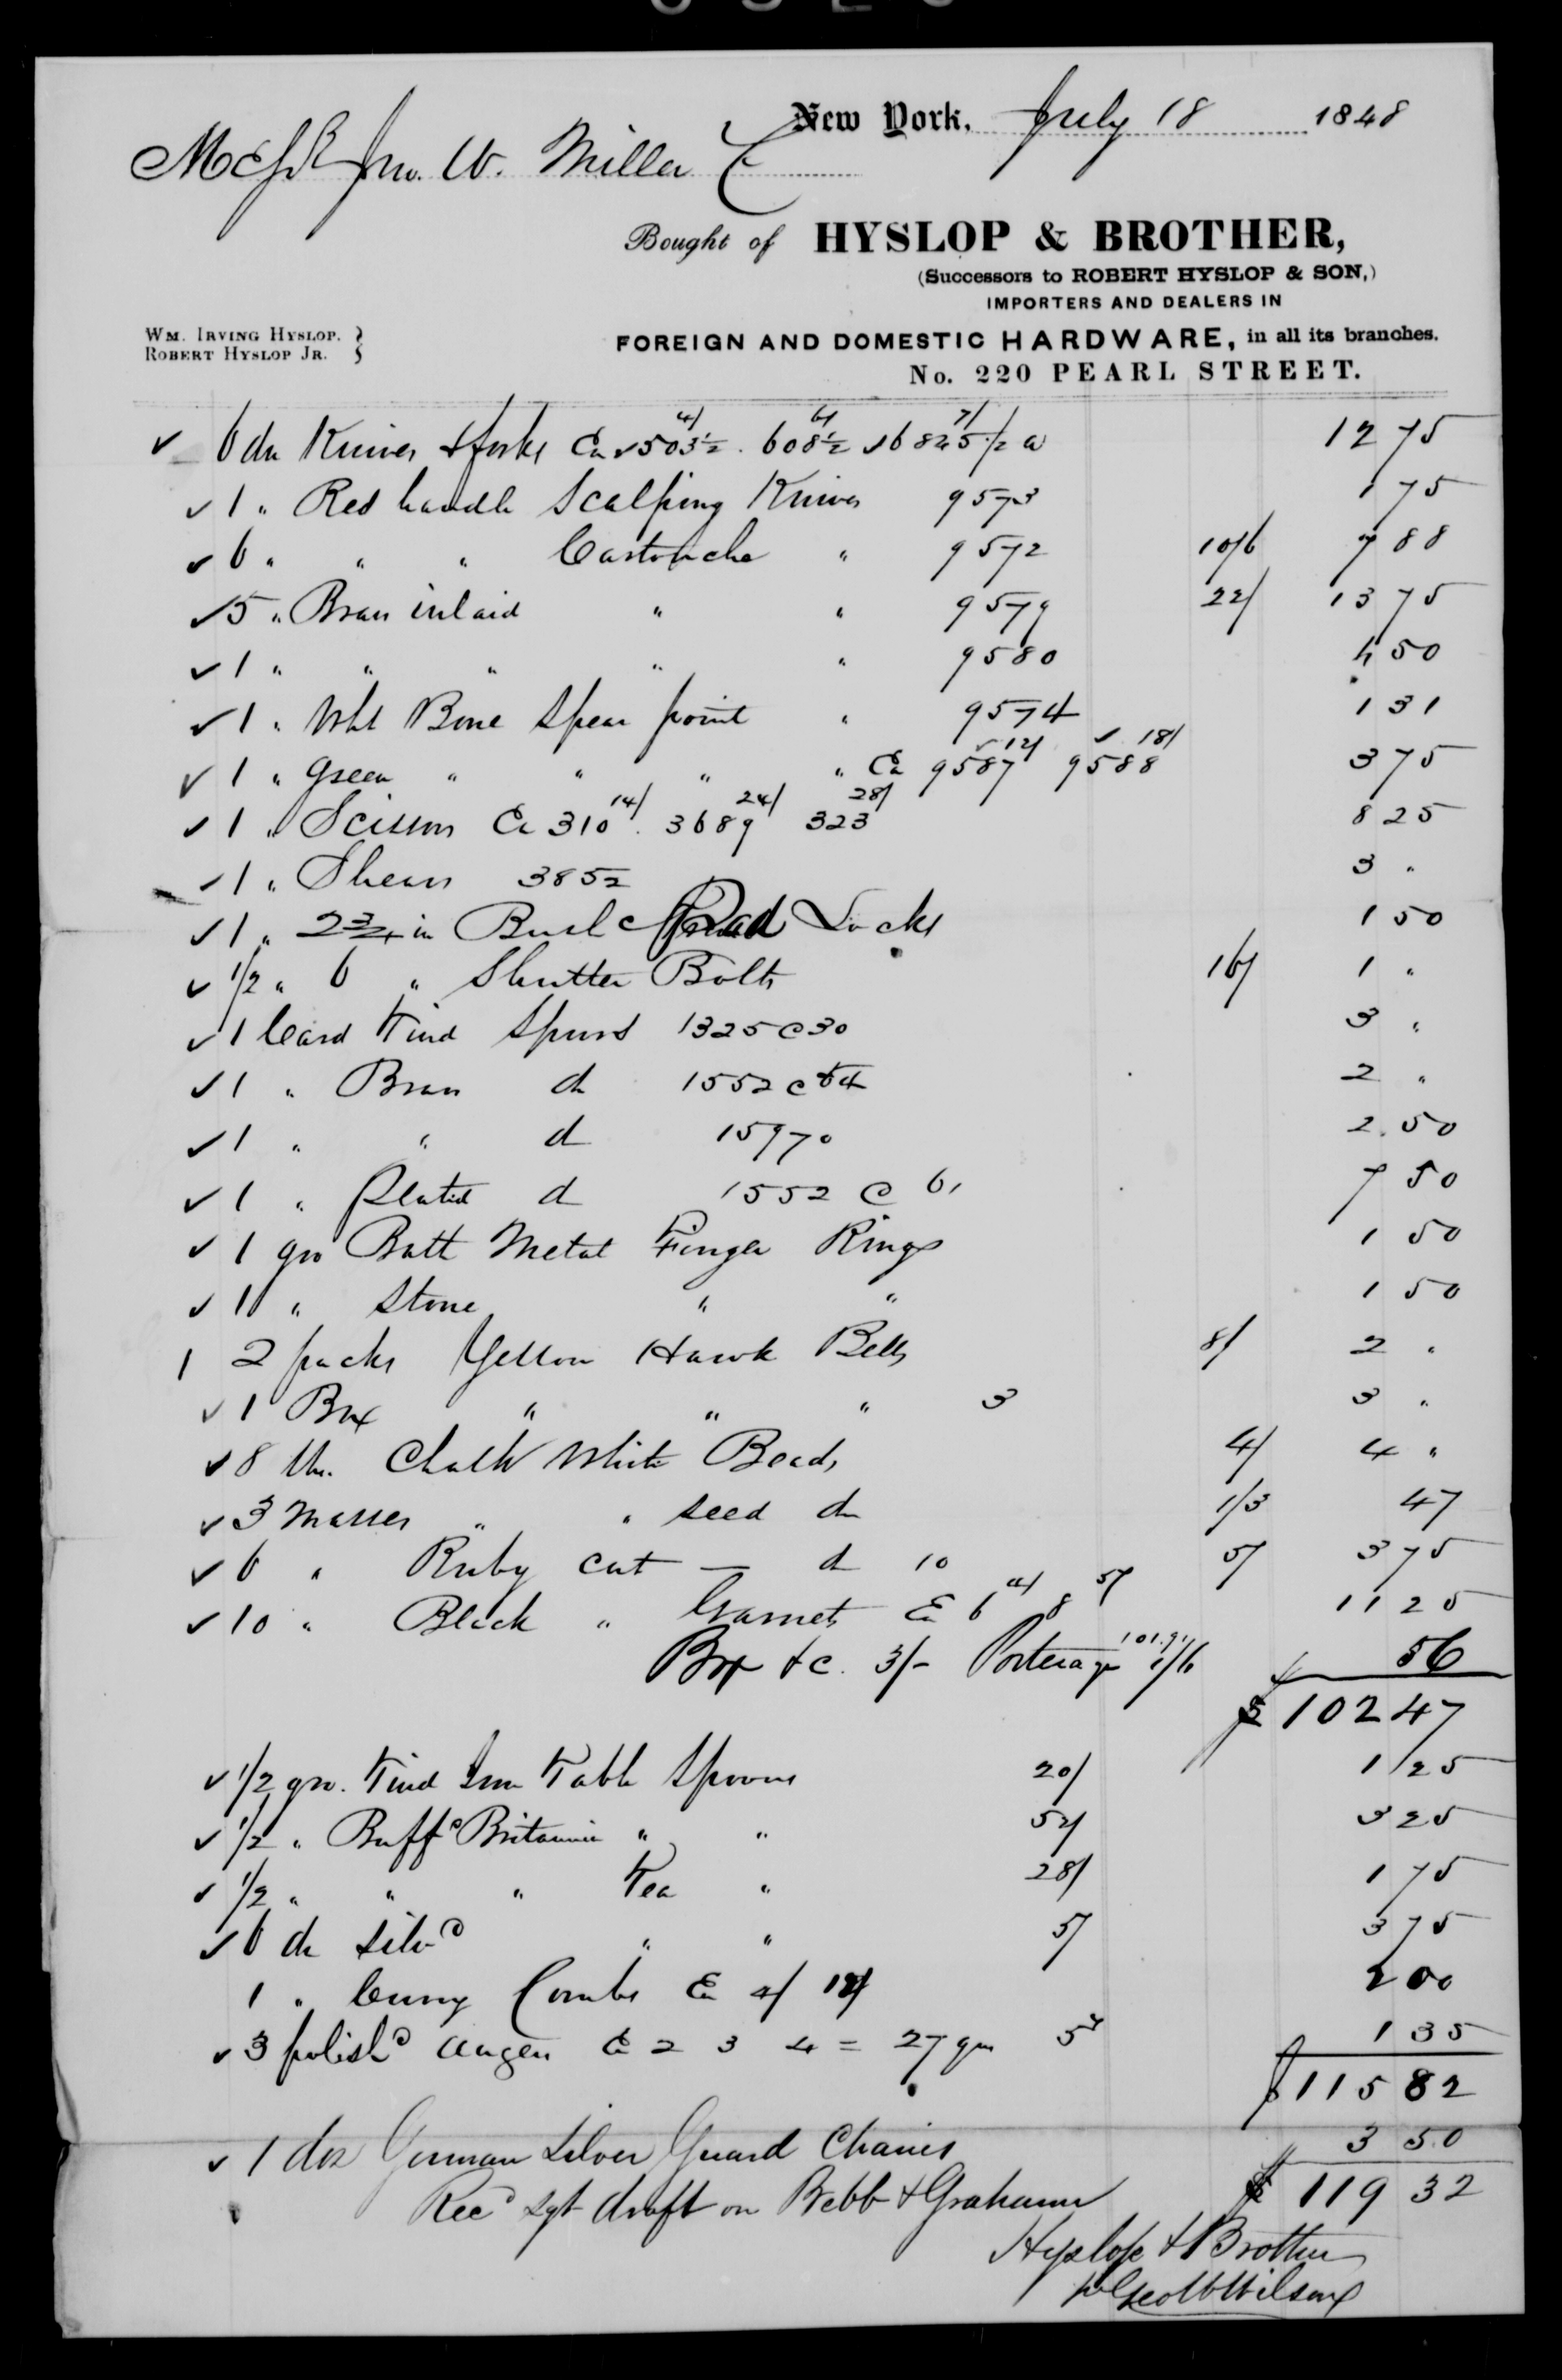 New York, July 18 1848
Messrs Jno. W. Miller
Bought of HYSLOP & BROTHER,
(Successors to ROBERT HYSLOP & SON,)
IMPORTERS AND DEALERS IN
WM. IRVING HYSLOP.
ROBERT HYSLOP JR.
FOREIGN AND DOMESTIC HARDWARE, in all its branches.
No. 220 PEARL STREET.
✓ 6 dz Knives & forks Ea ✓ 503½ 4/ . 608½ 6/ ✓ 6825½ 7/ 12 75
✓ 1 " Red handle Scalping Knives 9573 1 75
✓ 6 " " " Cartouche " 9572 10/6 7 88
✓ 5 " Brass inlaid " " 9579 22/ 13 75
✓ 1 " " " " " 9580 4 50
✓ 1 " Wht Bone Spear point " 9574 1 31
✓ 1 " Green " " " " Ea 9587 ✓ 12/ 9588 ✓ 18/ 3 75
✓ 1 " Scissors Ea 310 14/ . 3689 24/ 323 28/ 8 25
✓ 1 " Shears 3852 3 "
✓ 1 " 2¾ in Pad Locks 1 50
✓ ½ " 6 " Shutter Bolts 16/ 1 "
✓ 1 Card Tind Spurs 1325 C 30 3 "
✓ 1 " Brass do 1552 C 2 "
✓ 1 " " do 15970 2.50
✓ 1 " Plated do 1552 C 6, 7 50
✓ 1 gro Bath Metal Finger Rings 1 50
✓ 1 " Stone " " 1 50
2 packs Yellow Hawk Bells 8/ 2 "
✓ 1 Box " " " 3 3 "
✓ 8 lbs. Chalk White Beads 4/ 4 "
✓ 3 Masses " " seed do 1/3 47
✓ 6 " Ruby cut — do 10 5/ 3 75
✓ 10 " Black " Garnets Ea 6 4/ 8 5/ 11 25
Box &c. 3/- Porterage 1/6 101.91 56
$ 102 47
✓ ½ gro. Tind Iron Table Spoons 20/ 1 25
✓ ½ " Buffd Britannia " " 52/ 3 25
✓ ½ " " " Tea " 28/ 1 75
✓ 6 dz Silvd " " 5/ 3 75
1 " Curry Combs Ea 4/ 12/ 2 00
✓ 3 polishd Augers Ea 2 3 4 = 27 qrs 5 1 35
$ 115 82
✓ 1 doz German Silver Guard Chains 3 50
Recd sgt draft on Bebb & Graham $ 119 32
Hyslop & Brother